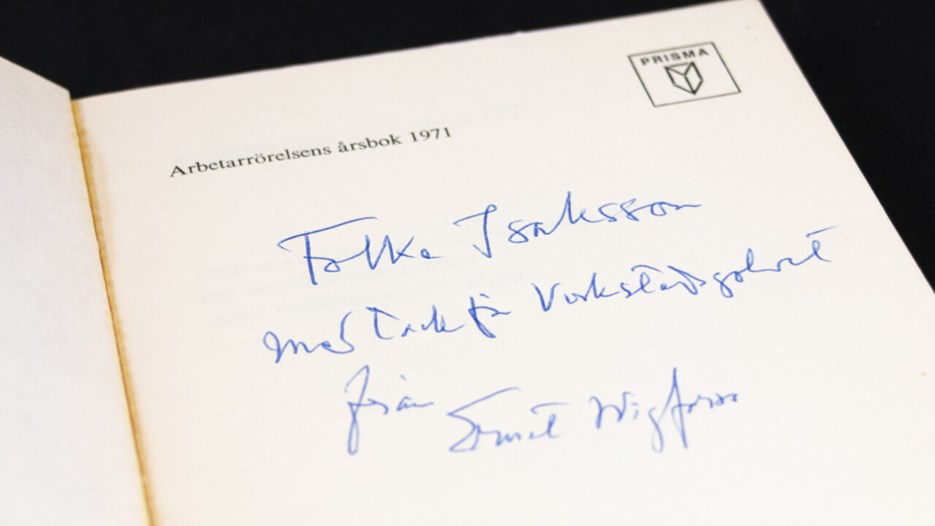 PRISMA
Arbetarrörelsens årsbok 1971
Folke Isaksson
med tack för Verkstadsgolvet
från Ernst Wigforss